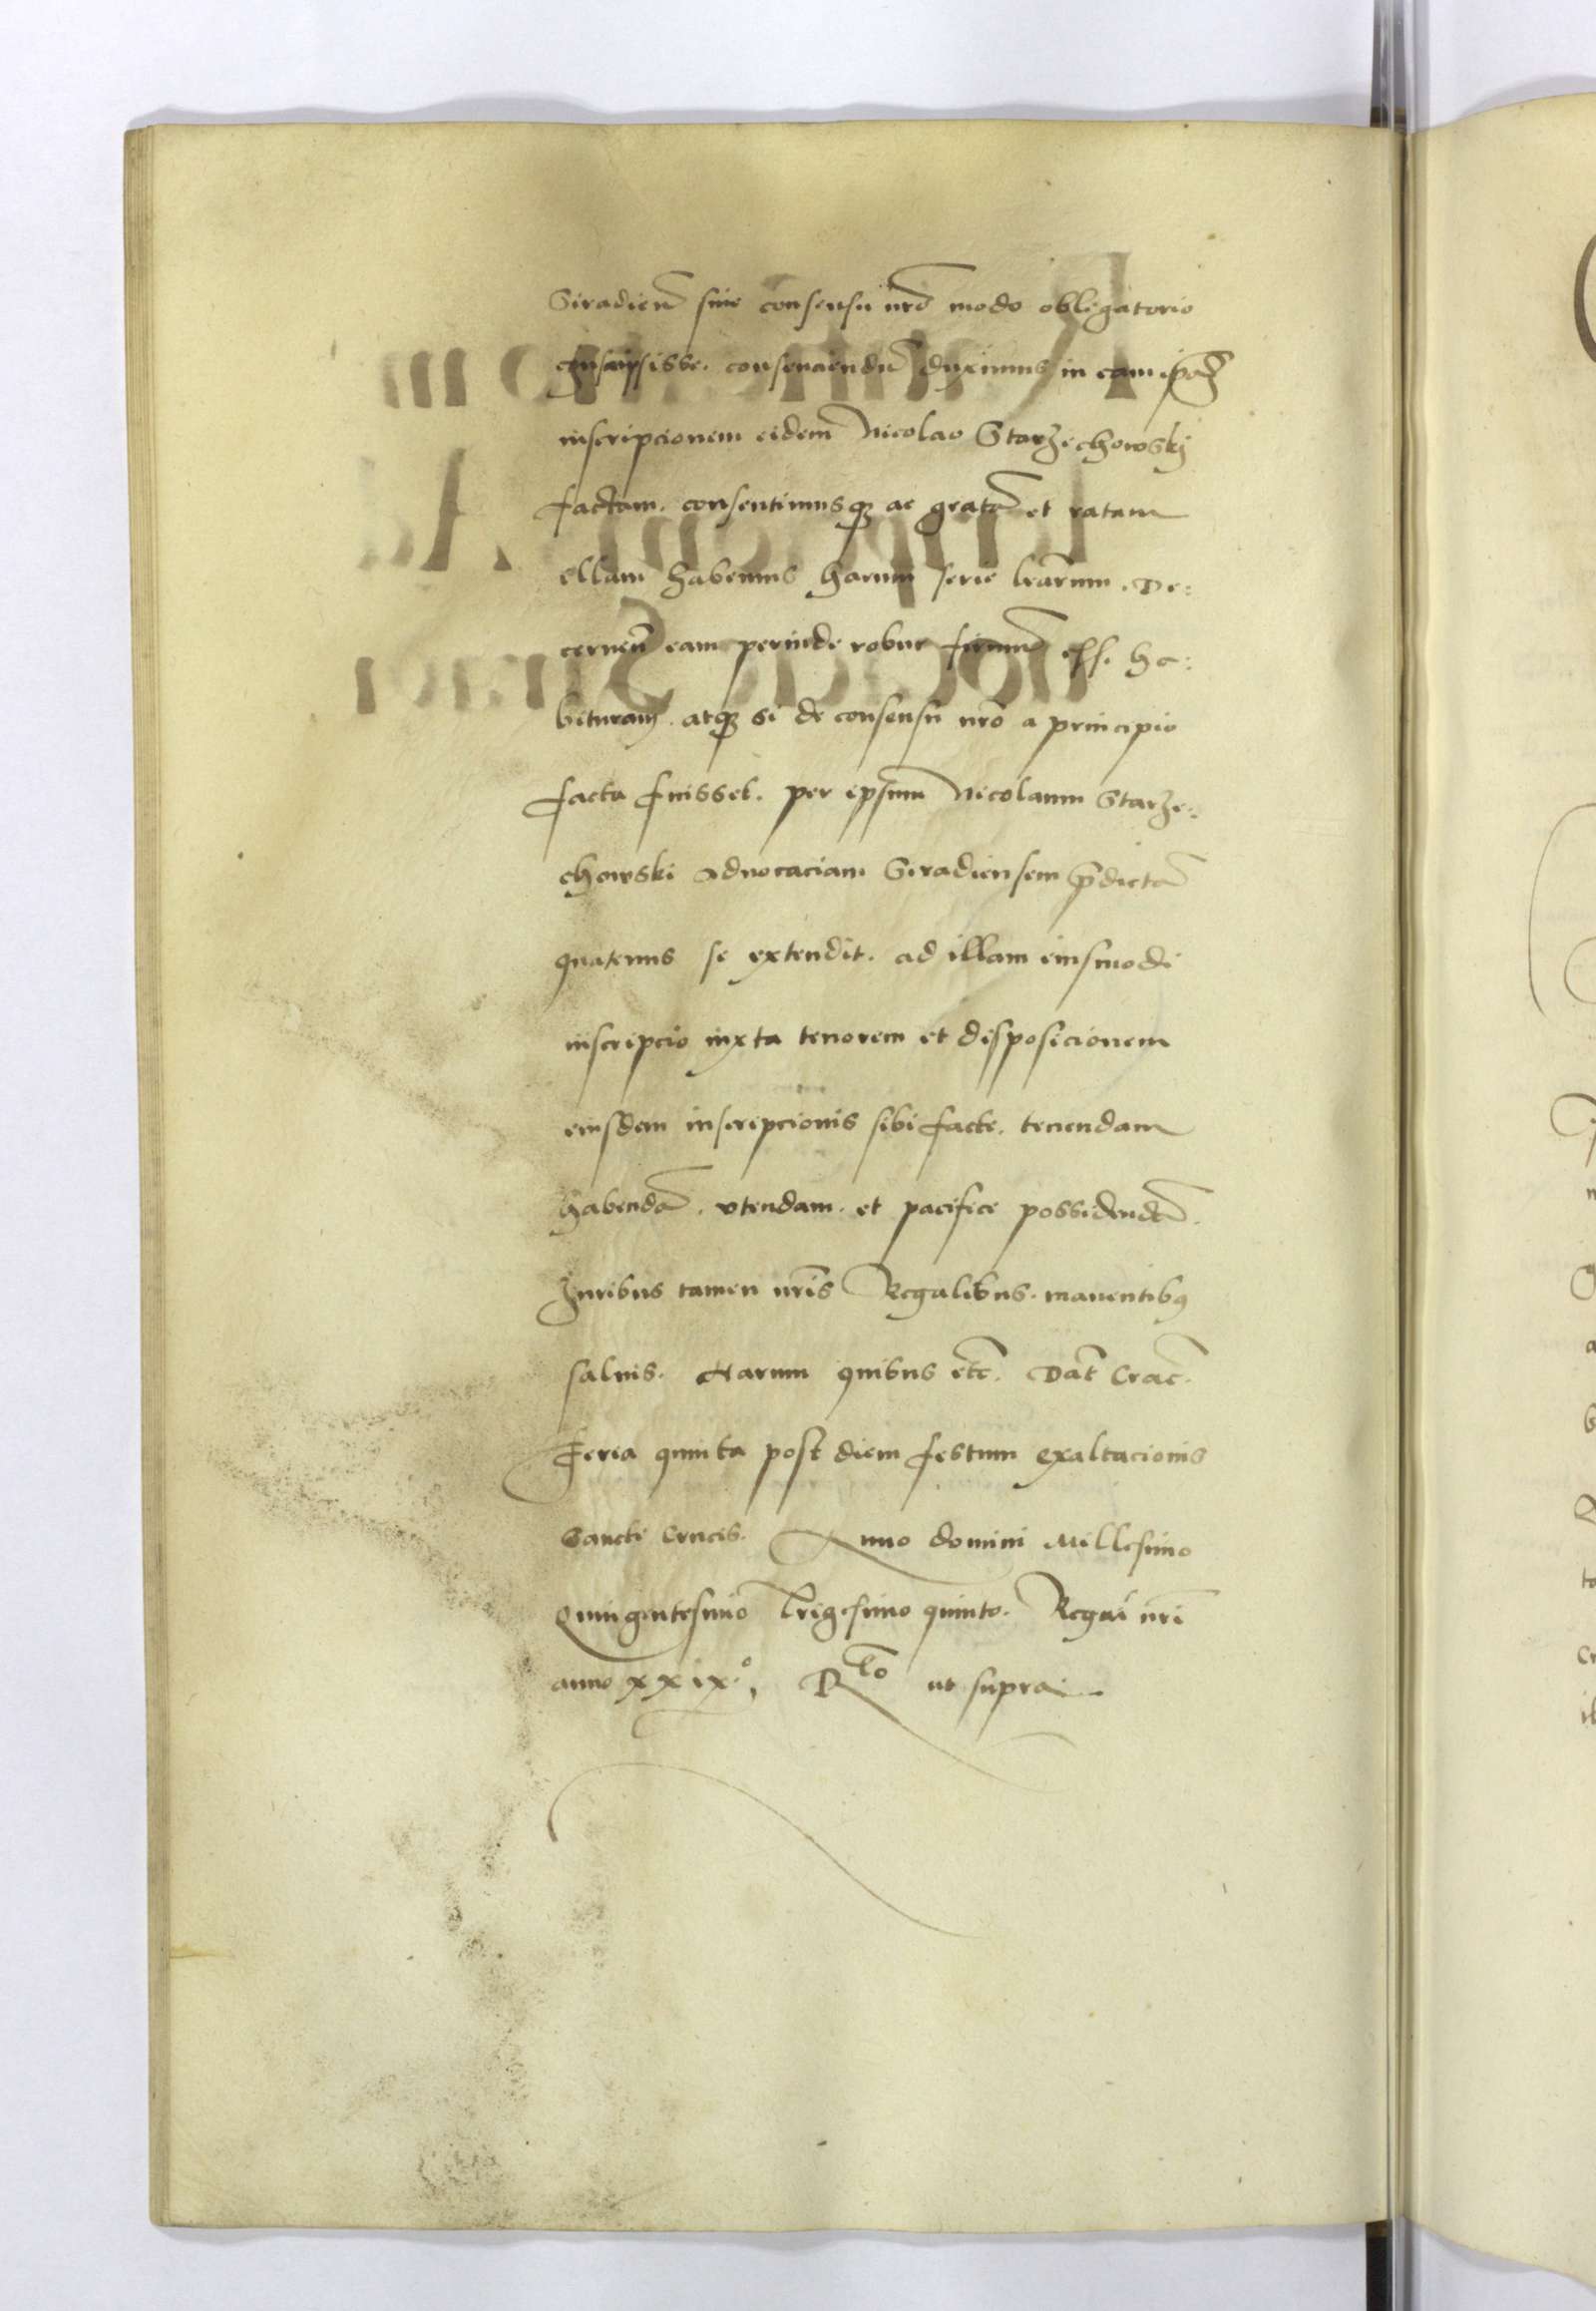 Siradien̄ sine consensu nr̄o modo obligatorio
conscripsisse. consenciendū duximus in eam p̄d
inscripcionem eidem Nicolao Starzechowskj
factam. consentimusqȝ ac gratā et ratam
illam habemus harum serie lr̄arum. De:
cernen̄ eam perinde robur firmū esse ha:
bituram. atqȝ si de consensu nr̄o a principio
facta fuisset. per ipsum Nicolaum Starze:
chowski Aduocaciam Siradiensem p̄dictā
quatenus se extendit. ad illam eiusmodi
inscripcio iuxta tenorem et disposicionem
eiusdem inscripcionis sibi facte. tenendam
habendā. vtendam. et pacifice possidendā.
Iuribus tamen nr̄is Regalibus. manentibꝯ
saluis. Harum quibus etc̄. Dat̄ Crac̄.
feria quinta post diem festum exaltacionis
Sancti Crucis. Anno domini Millesimo
Quingentesimo Trigesimo quinto. Regni nr̄i
anno xxix.º, Rlo ut supra